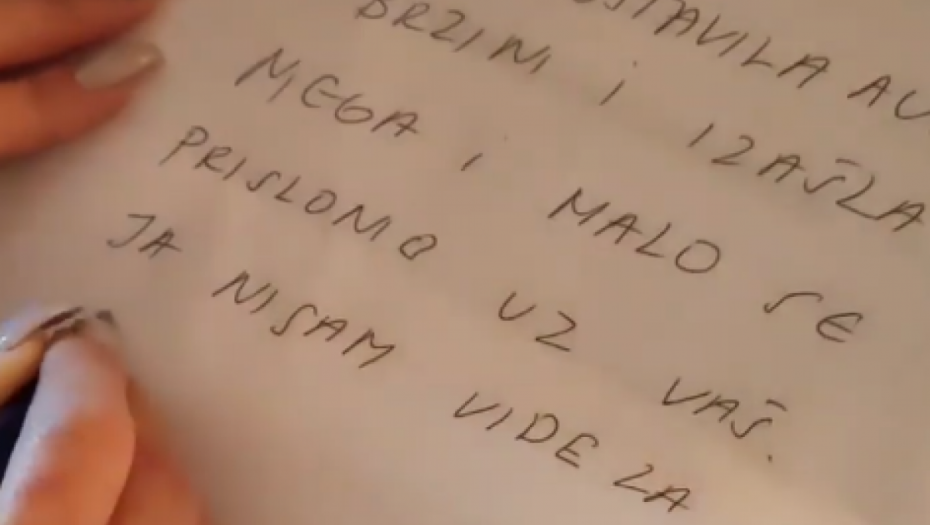 OSTAVILA AU
BRZINI I IZAŠLA
NJEGA I MALO SE
PRISLONIO UZ VAŠ.
JA NISAM VIDELA